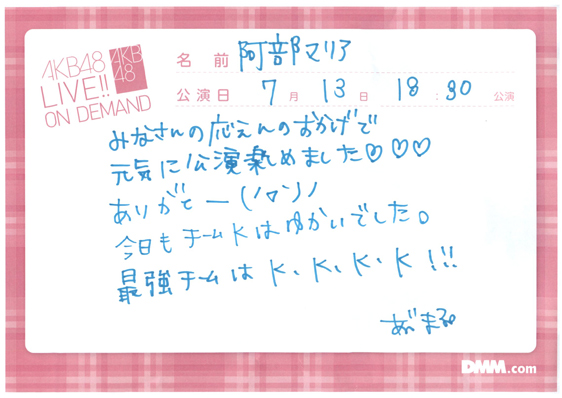 AKB48
LIVE!!
ON DEMAND
AKB
48
名 前 阿部マリア
公演日 7 月 13 日 18 : 30 公演
みなさんの応えんのおかげで
元気に公演楽しめました♡♡♡
ありがとー(ノマン)ノ
今日もチームKはゆかいでした。
最強チームは K、K、K、K!!!
あべまる
DMM.com